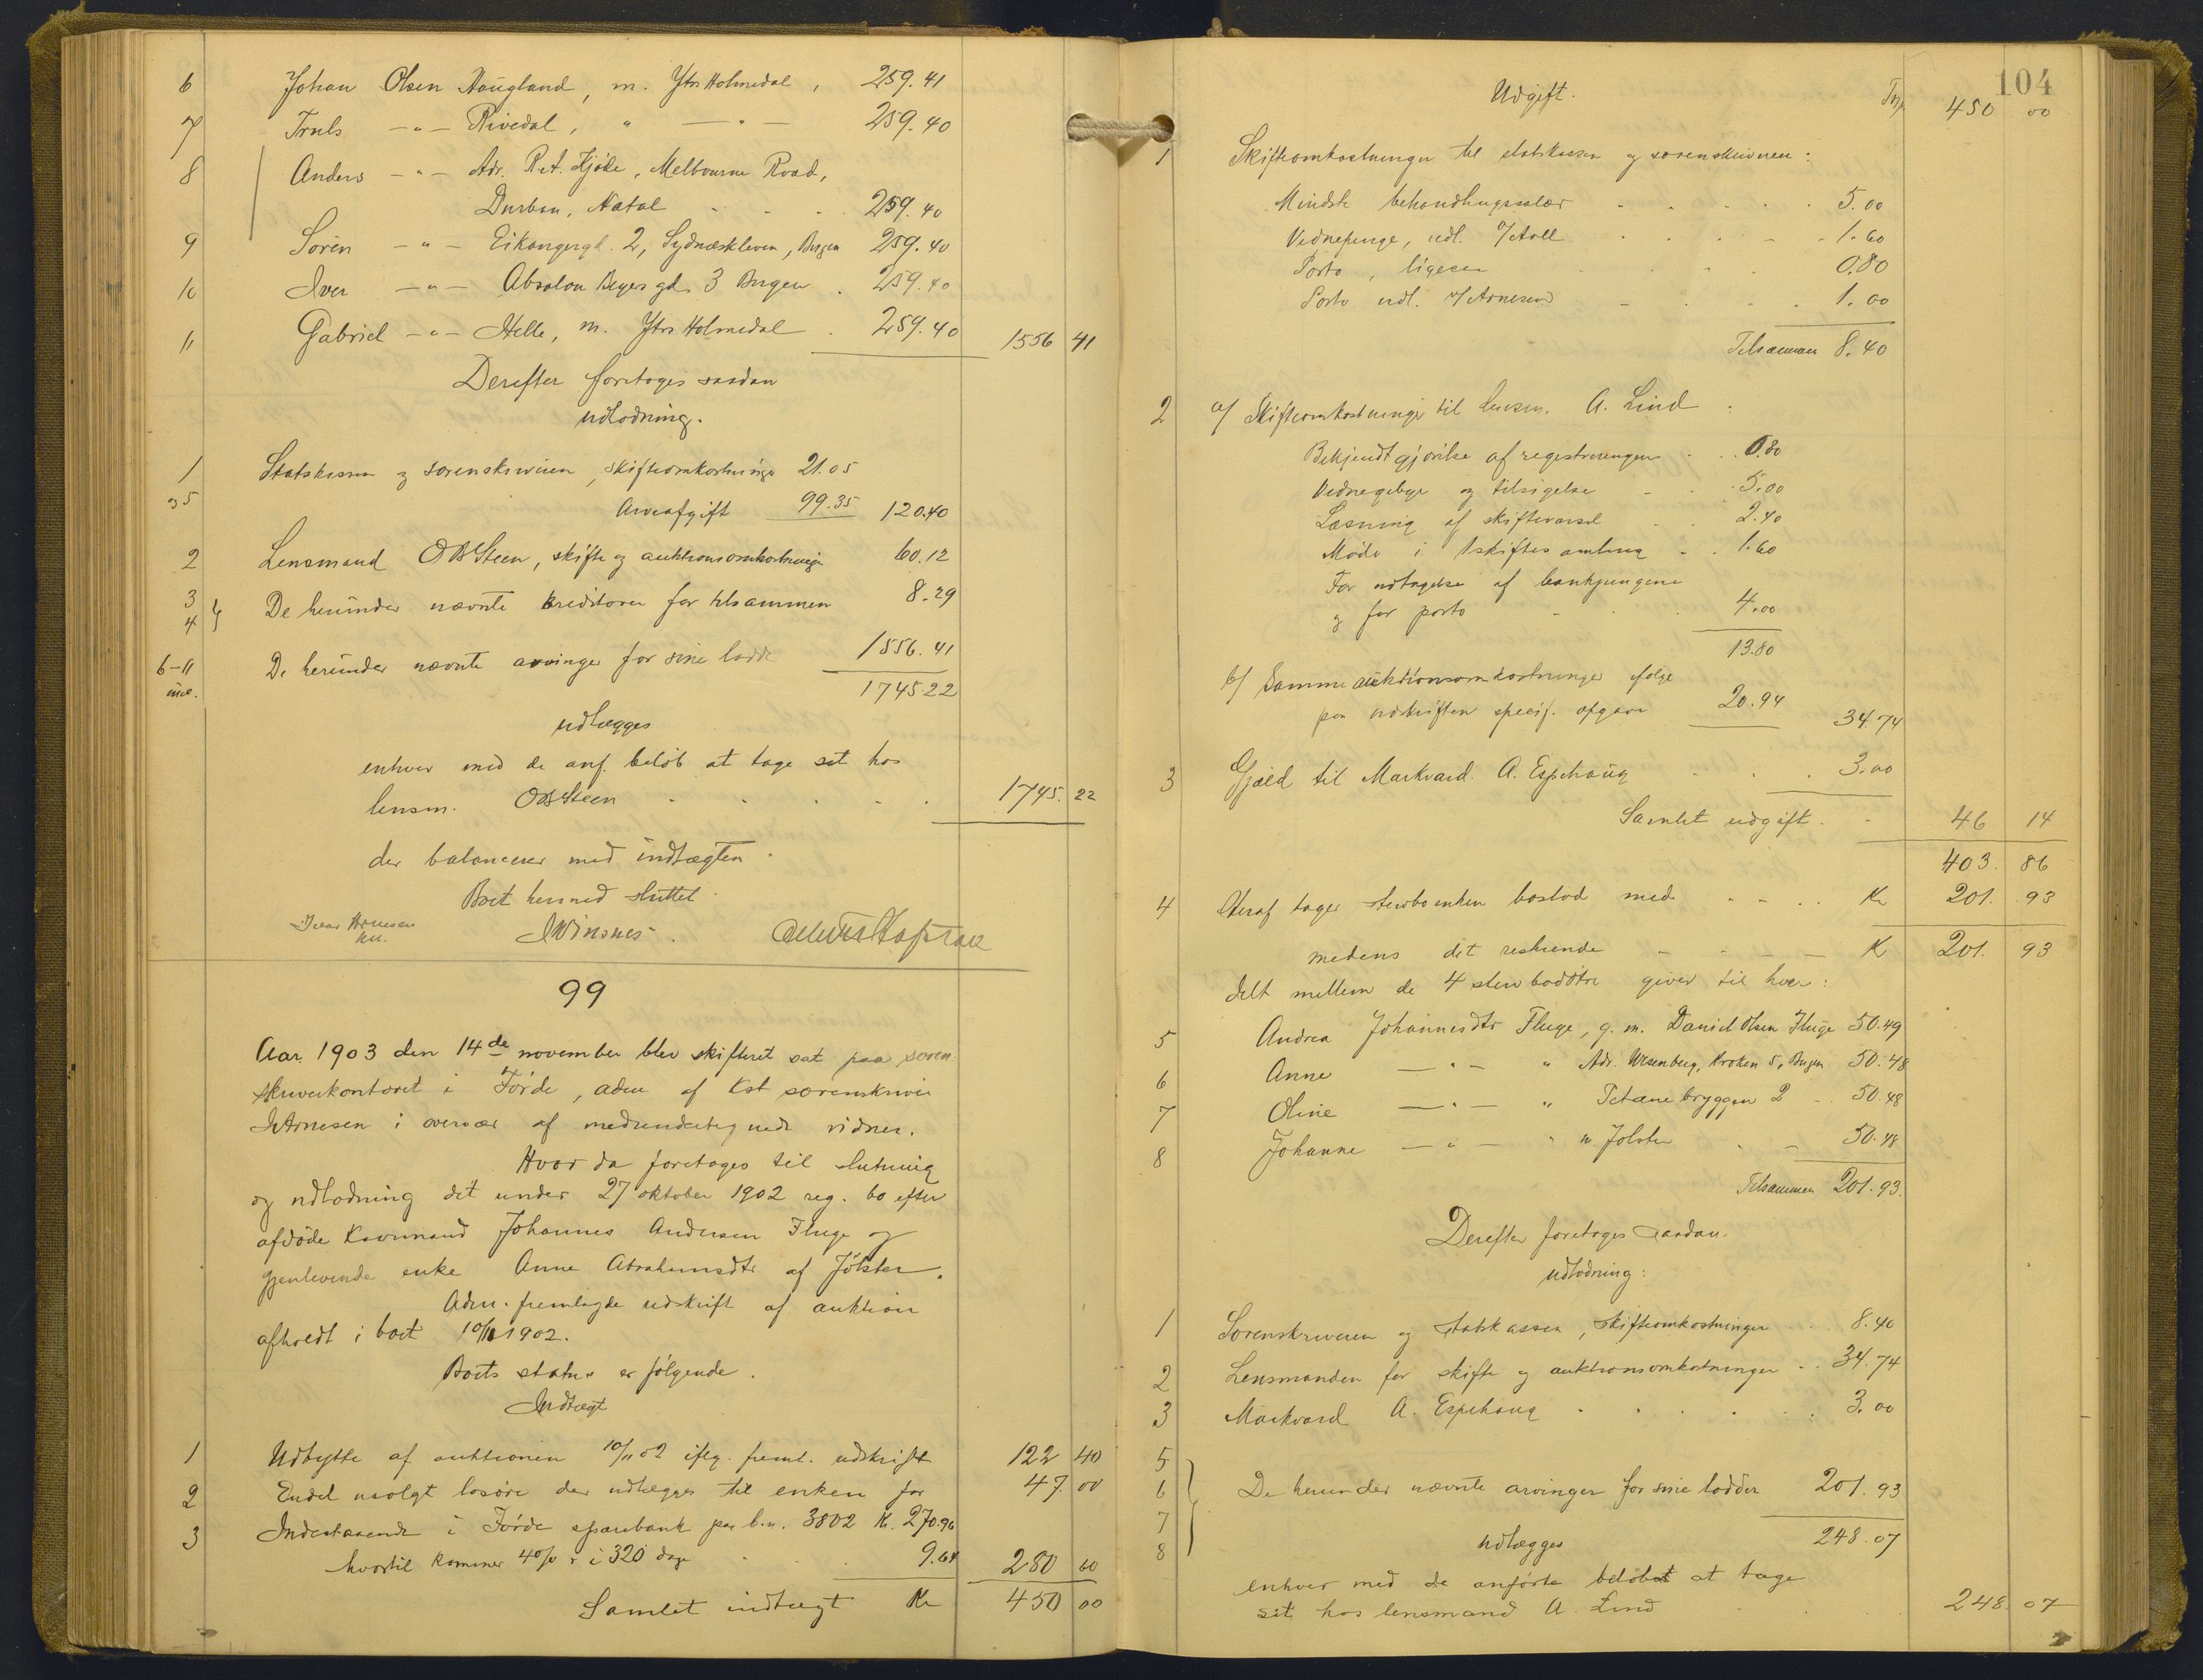 6 Johan Olsen Haugland, m. Ytr. Holmedal, 259.41
7 Truls -"- Rivedal, " -"- 259.40
8 Anders -"- Adr. R.A. Kjöde, Melbourne Road,
Durban, Natal 259.40
9 Sören -"- Eikangergd. 2, Sydnæskleven, Bergen 259.40
10 Iver -"- Absalon Beyers gd. 3 Bergen 259.40
11 Gabriel -"- Helle, m. Ytr. Holmedal 259.40 1556 41
Derefter foretoges saadan
udlodning.
1 Statskassen og sorenskriveren, skifteomkostninger 21.05
35 Arveafgift 99.35 120.40
2 Lensmand OBSteen, skifte og auktionsomkostninger 60.12
3 4 De herunder nævnte kreditorer for tilsammen 8.29
6-11 incl. De herunder nævnte arvinger for sine lodde 1556.41
1745.22
udlægges
enhver med de anf. beløb at tage sit hos
lensm. OBSteen 1745.22
der balancerer med indtægten.
Boet hermed sluttet.
Ivar Arnesen kst. Winsnes.
99
Aar 1903 den 14de november blev skifteret sat paa soren-
skriverkontoret i Förde, adm. af kst sorenskriver
I. Arnesen i overvær af medundertegnede vidner.
Hvor da foretoges til slutning
og udlodning det under 27 oktober 1902 reg. bo efter
afdöde Kaarmand Johannes Andersen Fluge og
gjenlevende enke Anne Abrahamsdtr af Jölster.
Adm. fremlagde udskrift af auktion
afholdt i boet 10/11 1902.
Boets status er følgende.
Indtægt
1 Udbytte af auktionen 10/11 02 iflg. freml. udskrift 122 40
2 Endel usolgt løsøre der udlægges til enken for 47 00
3 Indestaaende i Förde sparebank paa b.n. 3802 Kr. 270.96
hvortil kommer 4% r i 320 dage 9.64 280 60
Samlet indtægt Kr 450 00
104
Udgift. Trsp. 450 00
1 Skifteomkostninger til statskassen og sorenskriveren:
Mindste behandlingssalær 5.00
Vidnepenge, udl. 1.60
Porto, ligesaa 0.80
Porto udl. v/ Arnesen 1.00
Tilsammen 8.40
2 a/ Skifteomkostninger til lensm. A. Lind:
Bekjendtgjørelse af registreringen 0.80
Vidnegebyr og tilsigelse 5.00
Læsning af skiftevarsel 2.40
Møde i 1 skiftesamling 1.60
For udtagelse af bankpengene
og for porto 4.00
13.80
b/ Samme auktionsomkostninger ifølge
paa udskriften specif. opgave 20.94 34.74
3 Gjæld til Markvard A. Espehaug 3.00
Samlet udgift 46 14
403. 86
4 Heraf tager stervboenken boslod med Kr 201. 93
medens det resterende Kr 201. 93
delt mellem de 4 stervbodötre giver til hver:
5 Andrea Johannesdtr Fluge, g. m. Daniel Olsen Fluge 50.49
6 Anne -"- " Adr. Wesenberg, Kroken 5, Bergen 50.48
7 Oline -"- " Tetanebryggen 2 50.48
8 Johanne -"- " n. Jolster 50.48
Tilsammen 201.93.
Derefter foretoges saadan
udlodning:
1 Sorenskriveren og statskassen, skifteomkostninger 8.40
2 Lensmanden for skifte og auktionsomkostninger 34.74
3 Markvard A. Espehaug 3.00
5
6 De herunder nævnte arvinger for sine lodder 201.93
7
8 udlægges 248.07
enhver med de anførte beløbet at tage
sit hos lensmand A. Lind 248. 07